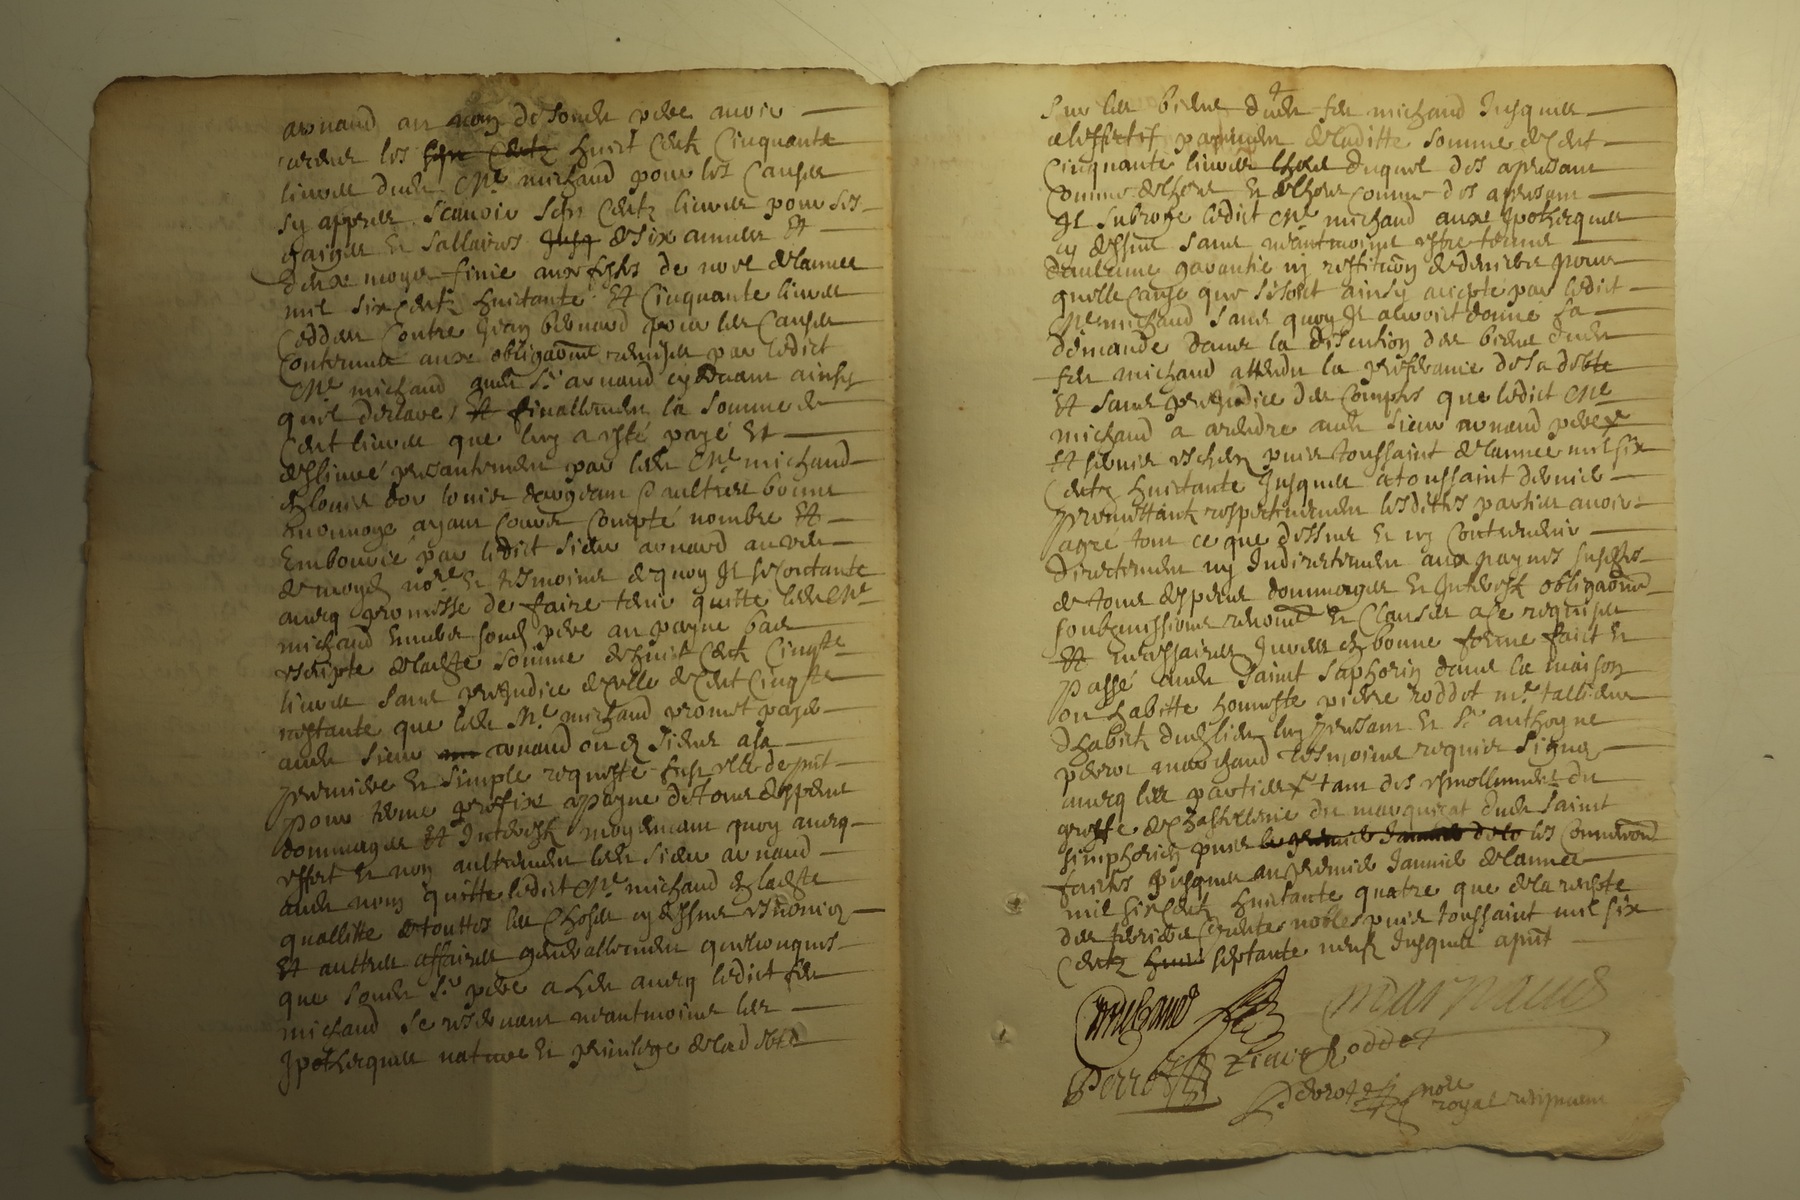 arnaud au nom de sondit pere avoir
receue les sept centz huict centz cinquante
livres dudit Me michaud pour les causes
sy appres scavoir sept centz livres pour ses
gaiges et sallaires jusq de six annees et
deux moys finie aux festes de noel de lannee
mil six centz huictante et cinquante livres
ceddees contre Jean bernard pour les causes
contenues aux obligaons remises par ledict
Me michaud audit Sr arnaud cy devant ainsy
quil declare, et finallement la somme de
cent livres que luy a esté payé et
deslivré presantement par ledit Me michaud
en louis dor louis dargeant et aultre bonne
monnoye ayant cours compté nombré et
Emboursé par ledict sieur arnaud au veu
de moydit nore et tesmoins de quoy Il se contante
avecq promesse de faire tenir quitte ledit Me
michaud envers sondit pere au payne bas
escripte de ladte somme de huict centz cinqte
livres sans prejudice de celle de cent cinqte
restante que ledit Me michaud promet payer
audit sieur arnaud ou es siens a sa
premiere et simple requeste sur elle de pnt
pour terme prefixe a payne de tous despens
dommages et Interestz moyennant quoy avecq
effect et non aultrement ledit sieur arnaud
audit nom quitte ledict Me michaud en ladte
quallitte de touttes les choses cy dessus
et aultres affaires generallement quelconques
que sondit Sr pere a heu avecq ledict feu
michaud se reservant neantmoins les
Ipotheques nature et privilege de lad debte
sur les biens dudit feu michaud Jusques
a leffectif payement de laditte somme de cent
cinquante livres duquel des apresant
comme delhors et delhors comme des apresant
Il subroge ledict Me michaud aux Ipotheques
cy dessus sans neantmoins estre tenus
daulcune garantie ny restituon de deniers pour
quelle cause que se soict ainsy accepte par ledict
Me michaud sans quoy Il alloict donne sa
demande dans la discution des biens dudit
feu michaud attendu la preferance de sa debte
et sans prejudice des comptes que ledict Me
michaud a a rendre audit sieur arnaud pere
et fermes escheus puis toussaint de lannee mil six
centz huictante Jusques a toussaint dernier
promettantz respectivement lesdittes parties avoir
agre tout ce que dessus et ny contrevenir
directement ny Indirectement aux paynes susdtes
de tous despens dommages et Interestz obligaons
soubzmissions renonc et clauses a ce requises
et necessaires Jurees en bonne forme faict et
passé audit saint saphorin dans la maison
ou habitte honneste pierre roddet Me tallieur
dhabitz dudit lieu luy presant et Sr anthoyne
perrot marchand tesmoins requis signez
avecq les parties tant des esmollumens du
greffe de chastellenie du marquisat dudit saint
simphorien puis le premier Janvier de lo les comunaond
faictes jusques au premier Janvier de lannee
mil six centz huictante quatre que de la receste
des servis et rentes nobles puis toussaint mil six
centz huict septante neufz Jusques a pnt
michaud
marnaud
Perrot
Pierre Roddet
Perrot nore
royal